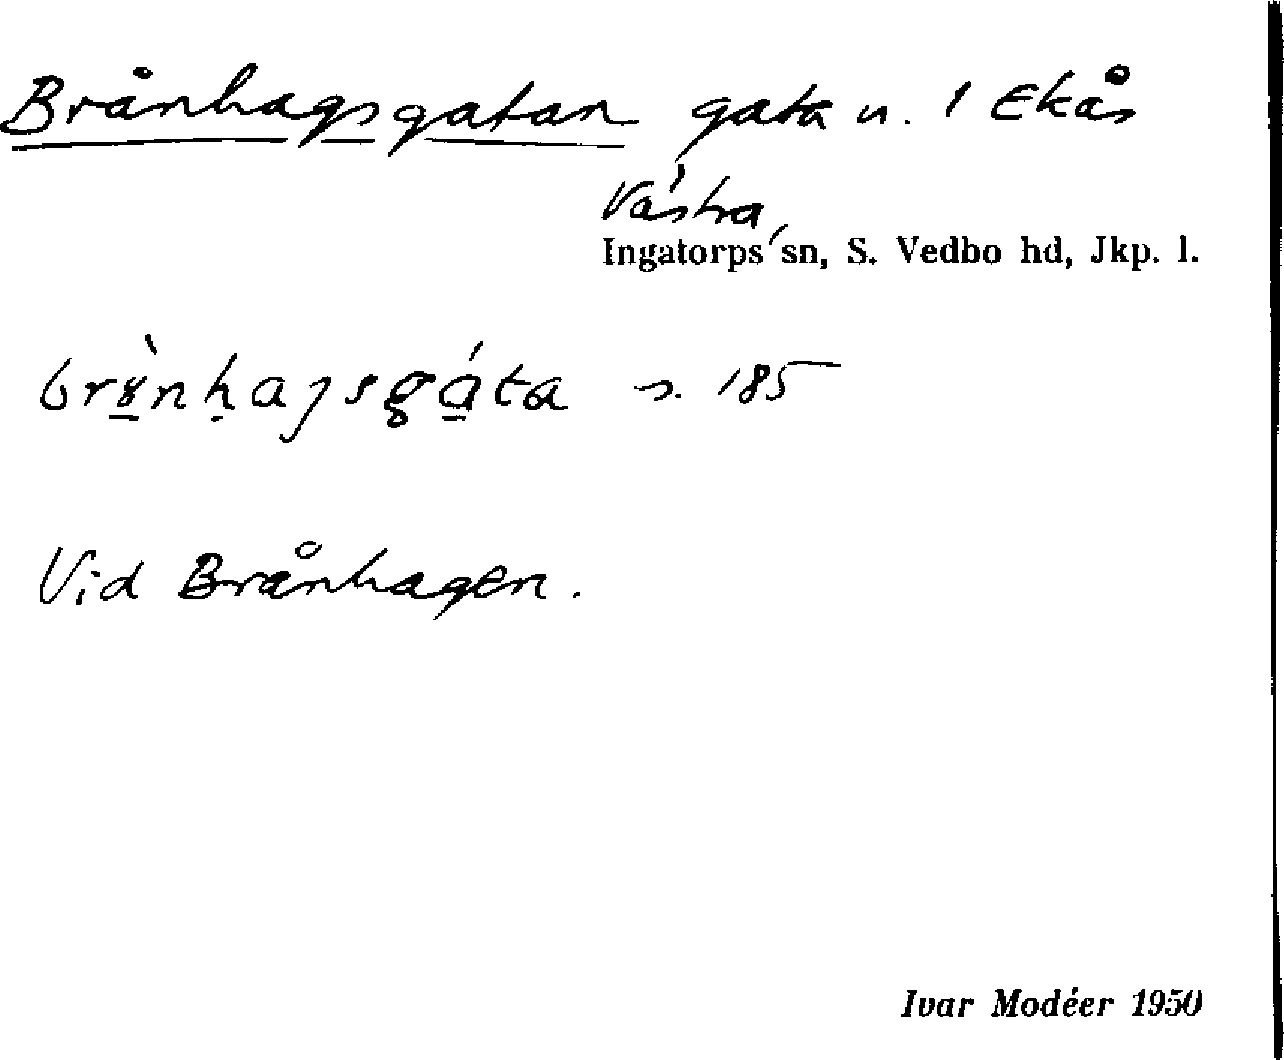 Brånhagsgatan gata n. 1 Ekås
Västra
Ingatorps sn, S. Vedbo hd, Jkp. l.
s. 185
Vid Brånhagen.
Ivar Modéer 1950